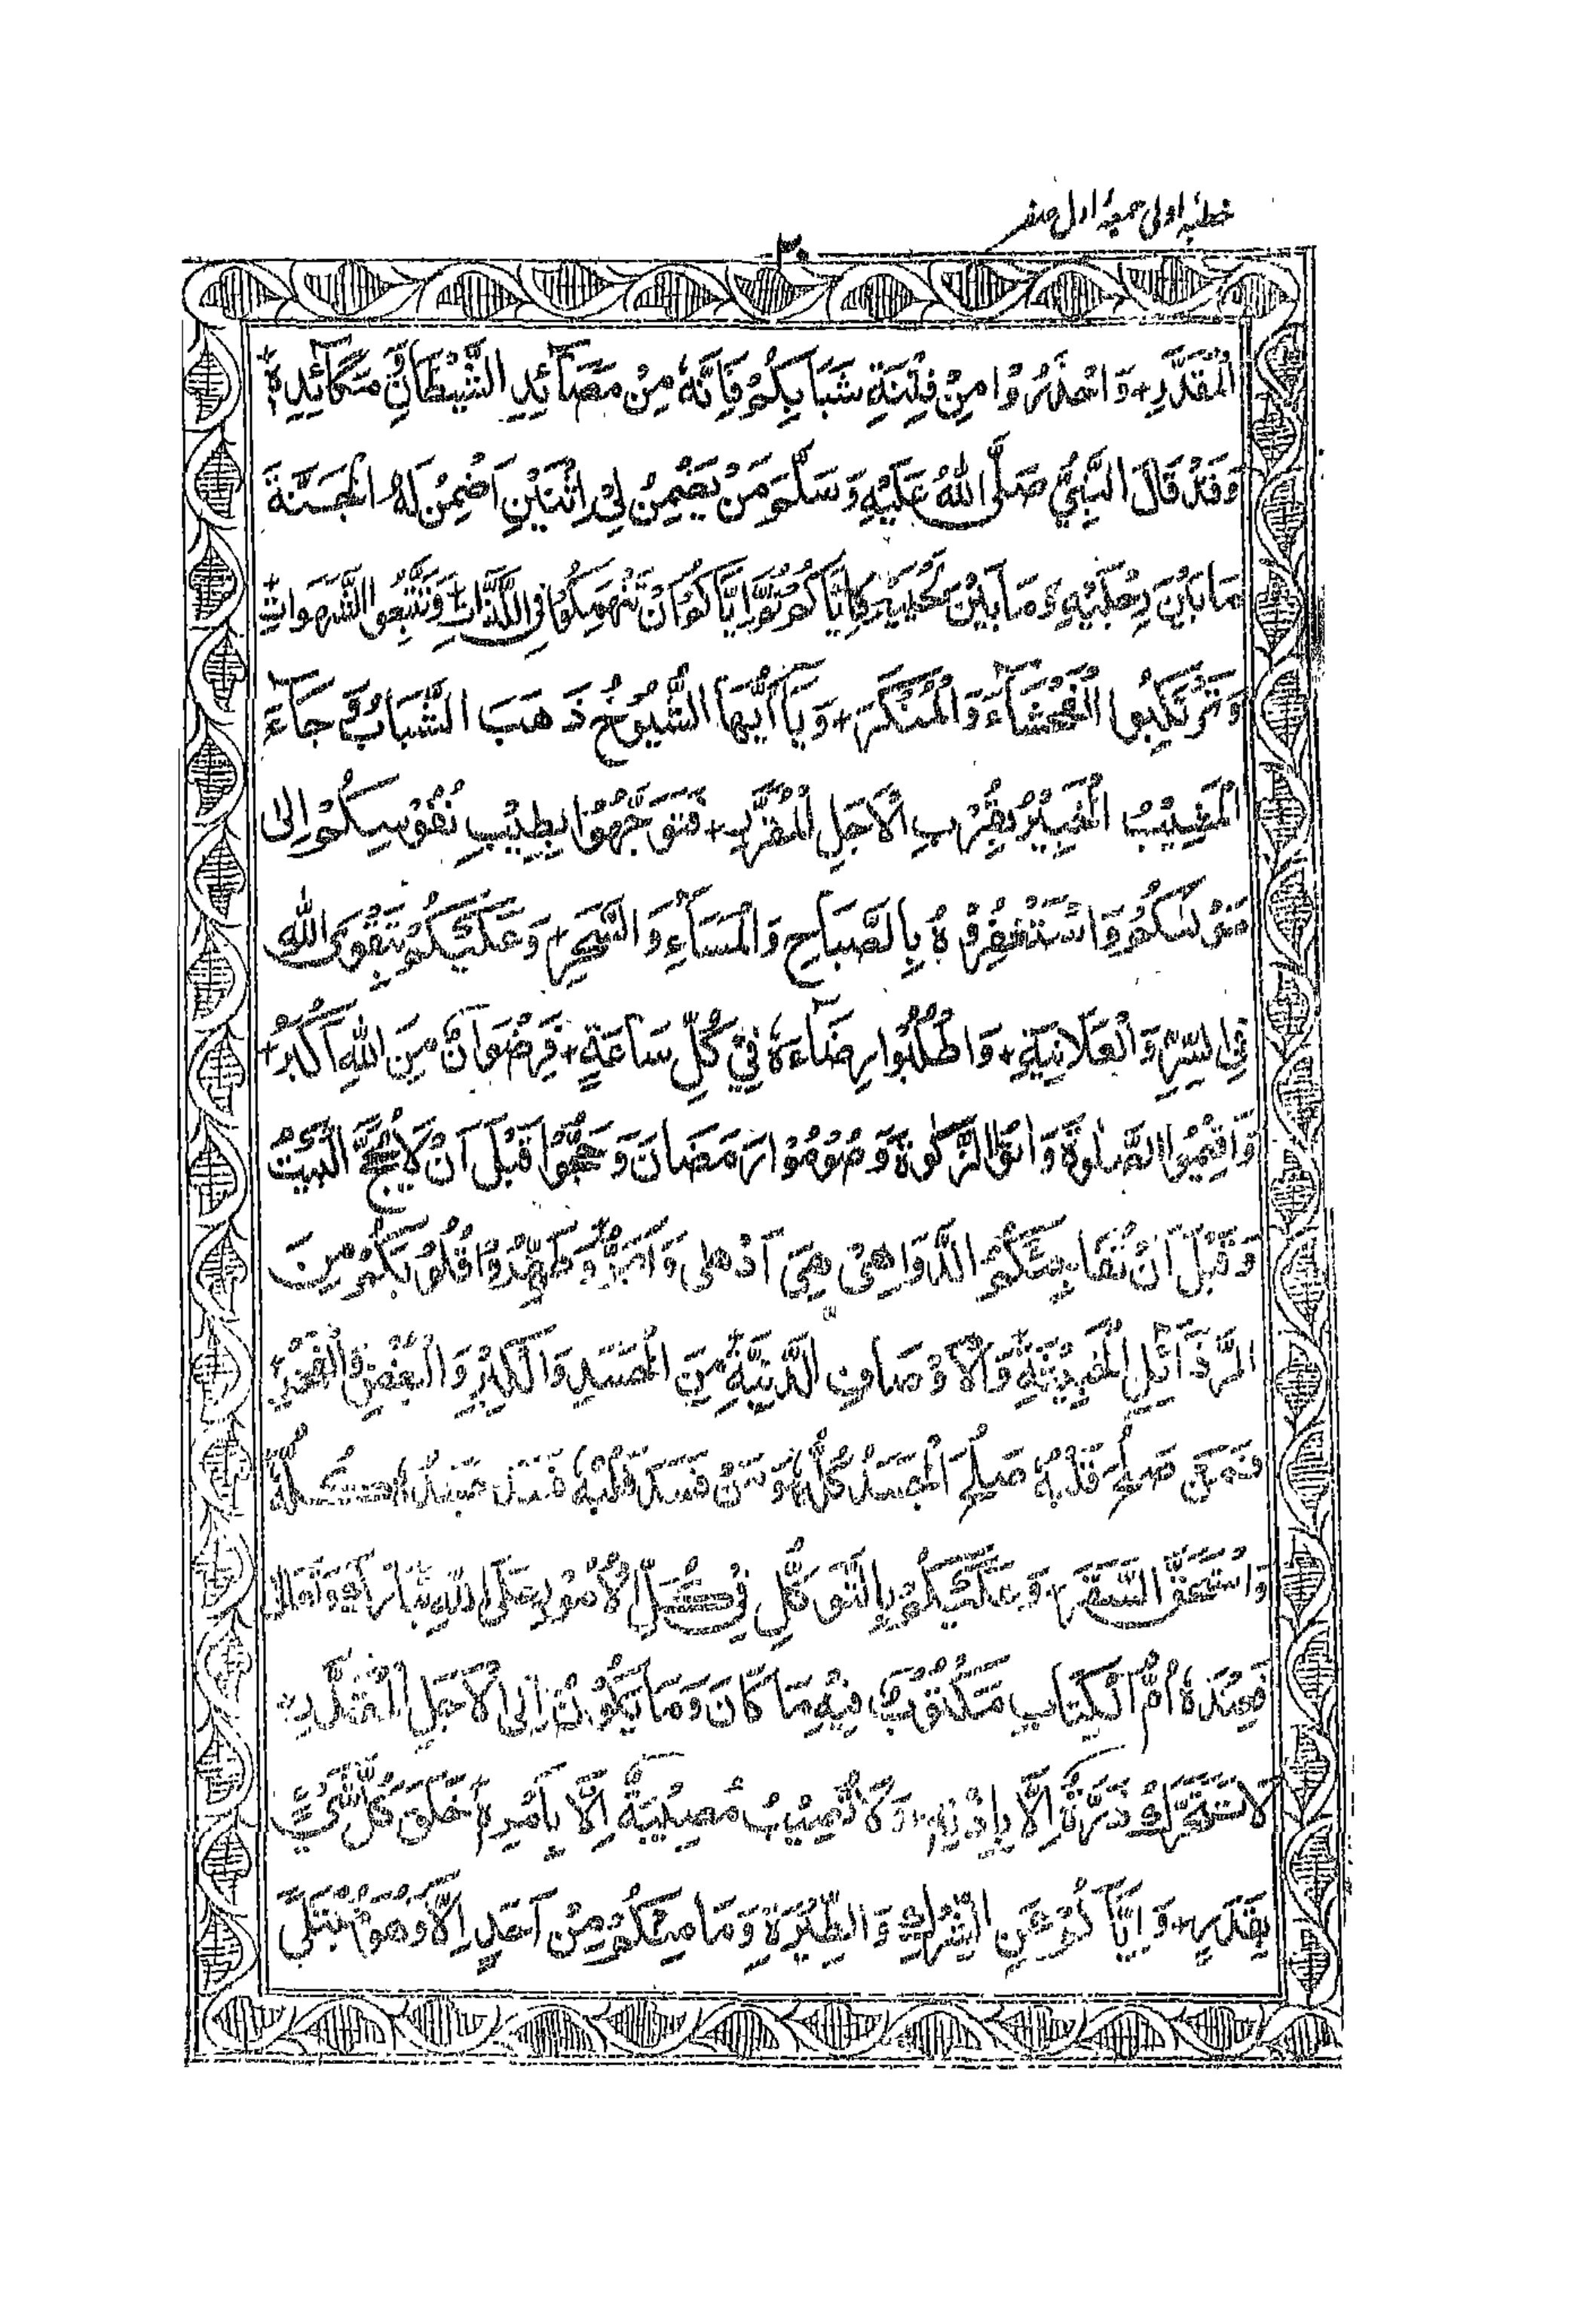 خطبۂ اولی جمعۂ اول صفر
۲۰
الْمُقَدَّرِ+ وَاحْذَرُوْا مِنْ فِتْنَةِ شَبَابِكُمْ فَاِنَّهٗ مِنْ مَصَآئِدِ الشَّيْطَانِ وَ مَكَآئِدِهٖ+
وَقَدْ قَالَ النَّبِيُّ صَلَّى اللهُ عَلَيْهِ وَسَلَّمَ مَنْ يَضْمِنُ لِيْ اثْنَيْنِ اَضْمِنُ لَهُ الْجَنَّةَ
مَا بَيْنَ رِجْلَيْهِ وَمَا بَيْنَ لَحْيَيْهِ فَاِيَّاكُمْ ثُمَّ اِيَّاكُمْ اَنْ تَنْهَمِكُوْا فِي اللَّذَّاتِ+ وَتَتَّبِعُوا الشَّهَوَاتِ+
وَتَرْتَكِبُوا الْفَحْشَآءَ وَالْمُنْكَرَ+ وَيَآ اَيُّهَا الشُّيُوْخُ ذَهَبَ الشَّبَابُ وَ جَآءَ
الْمَشِيْبُ الْمُخْبِرُ بِقُرْبِ الْاَجَلِ الْمُقَرَّرِ+ فَتَوَجَّهُوْا بِطِيْبِ نُفُوْسِكُمْ اِلٰى
مَوْلٰكُمْ وَاسْتَغْفِرُوْهُ بِالصَّبَاحِ وَالْمَسَآءِ وَالسَّحَرِ+ وَعَلَيْكُمْ بِتَقْوَى اللهِ
فِي السِّرِّ وَالْعَلَانِيَةِ+ وَاطْلُبُوا رِضَآءَهٗ فِيْ كُلِّ سَاعَةٍ+ فَرِضْوَانٌ مِنَ اللهِ اَكْبَرُ+
وَاَقِيْمُوا الصَّلٰوةَ وَاٰتُوا الزَّكٰوةَ وَصُوْمُوْا رَمَضَانَ وَحُجُّوْا قَبْلَ اَنْ لَا يُحَجَّ الْبَيْتُ
وَقَبْلَ اَنْ تُفَاجِئَكُمُ الدَّوَاهِيْ هِيَ اَدْهٰى وَاَمَرُّ وَطَهِّرُوْا قُلُوْبَكُمْ مِنَ
الرَّذَآئِلِ الْخَبِيْثَةِ وَالْاَوْصَافِ الدَّنِيَّةِ مِنَ الْحَسَدِ وَالْكِبْرِ وَالْبُغْضِ وَالْغَدْرِ+
فَمَنْ صَلُحَ قَلْبُهٗ صَلُحَ الْجَسَدُ كُلُّهٗ وَمَنْ فَسَدَ قَلْبُهٗ فَسَدَ جَسَدُهٗ كُلُّهٗ
وَاسْتَحَقَّ السَّقَرَ+ وَعَلَيْكُمْ بِالتَّوَكُّلِ فِيْ كُلِّ الْاُمُوْرِ عَلَى اللهِ تَبَارَكَ وَتَعَالٰى
فَعِنْدَهٗ اُمُّ الْكِتَابِ مَكْتُوْبٌ فِيْهِ مَا كَانَ وَمَا يَكُوْنُ اِلَى الْاَجَلِ الْمُقَدَّرِ+
لَا تَتَحَرَّكُ ذَرَّةٌ اِلَّا بِاِذْنِهٖ+ وَلَا تُصِيْبُ مُصِيْبَةٌ اِلَّا بِاَمْرِهٖ+ خَلَقَ كُلَّ شَيْءٍ
بِقَدَرٍ+ وَاِيَّاكُمْ عَنِ الشِّرْكِ وَالطِّيَرَةِ وَمَا مِنْكُمْ مِنْ اَحَدٍ اِلَّا وَهُوَ مُبْتَلًى